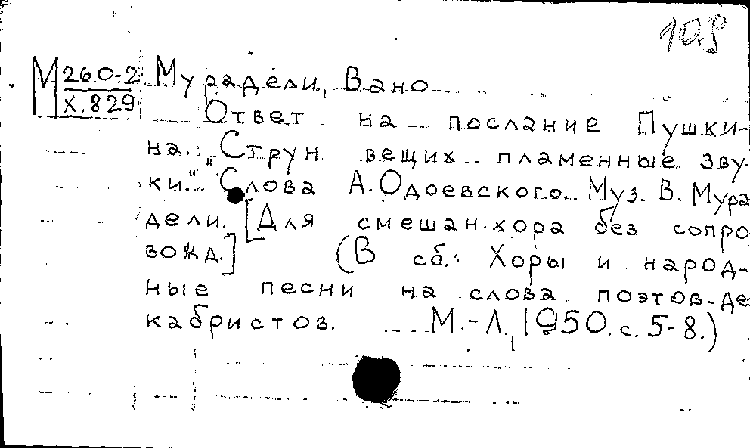 М 260-2 Мурадели, Вано
Х.829 Ответ на послание Пушки-
на: „Струн вещих пламенные зву-
ки." Слова А. Одоевского. Муз. В. Мура
дели. [Для смешан. хора без сопро
вожд.] (В сб.: Хоры и народ-
ные песни на слова поэтов-де
кабристов. М.-Л., 1950. с. 5-8.)